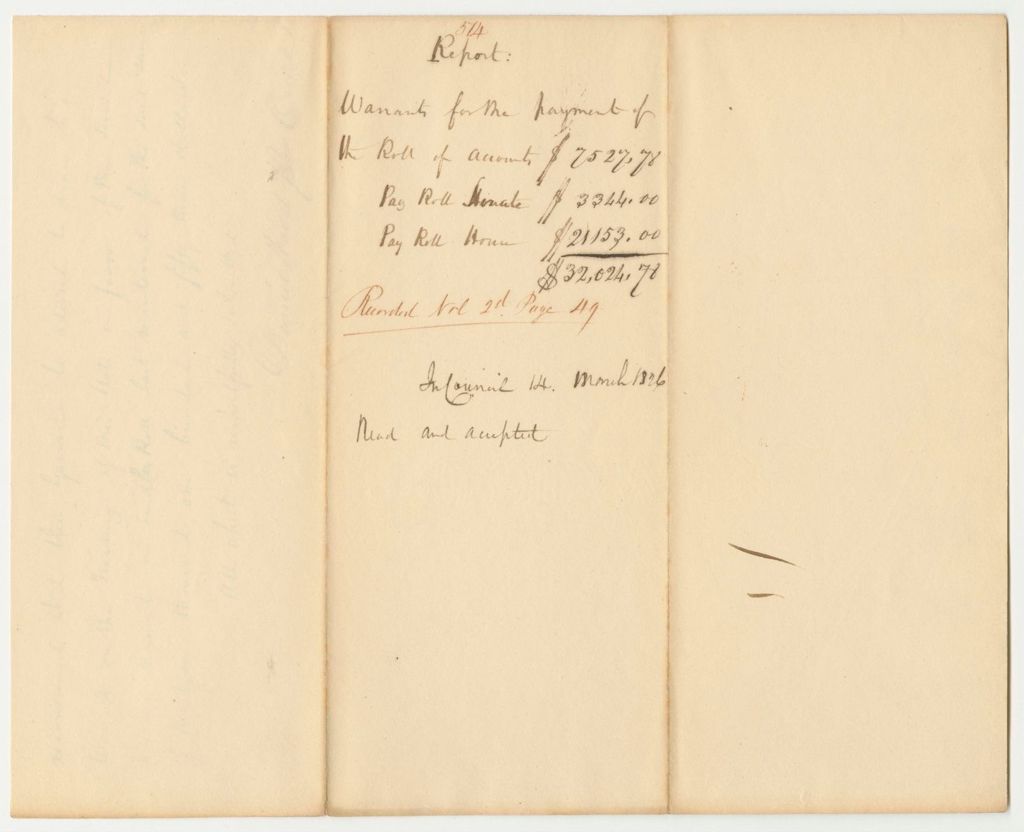 514
Report:
Warrants for the payment of
the Roll of accounts $ 7527,78
Pay Roll Senate $ 3344.00
Pay Roll House $ 21153.00
$ 32,024,78
Recorded Vol 2d. Page 49
In Council 14. March 1826
Read and accepted